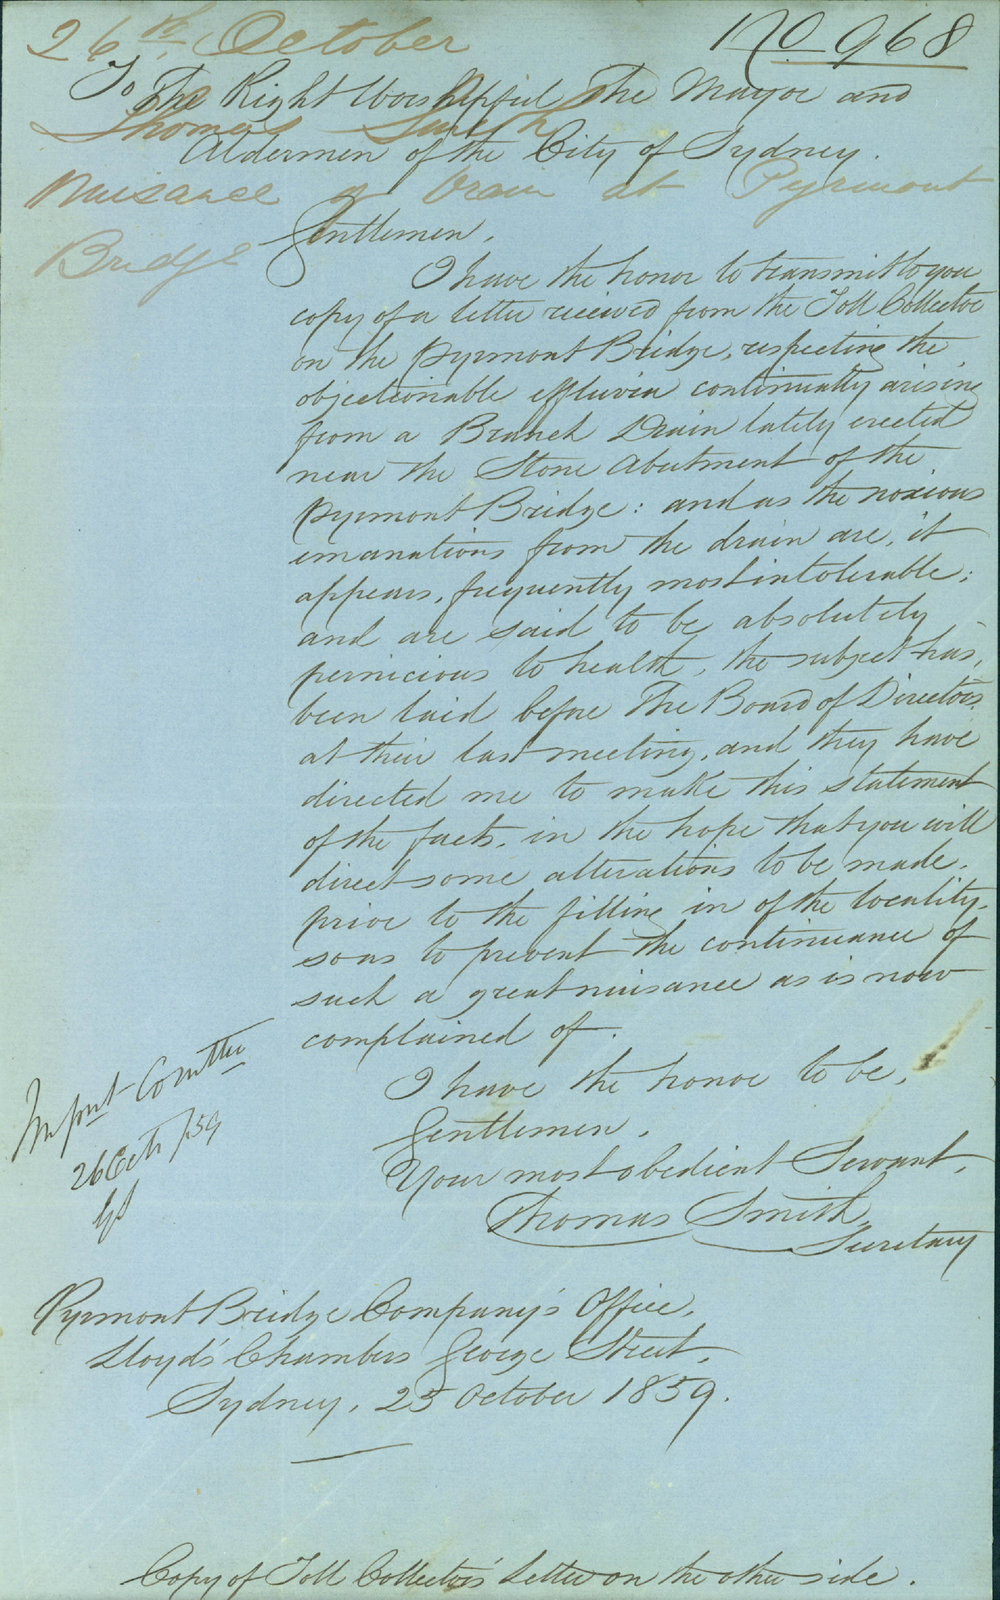 26th October
No 968
To The Right Worshipful The Mayor and
Thomas Smith
Aldermen of the City of Sydney.
Nuisance of Drain at Pyrmont
Bridge
Gentlemen,
I have the honor to transmit to you
copy of a letter received from the Toll Collector
on the Pyrmont Bridge, respecting the
objectionable effluvia continually arising
from a Branch Drain lately erected
near the Stone Abutment of the
Pyrmont Bridge: and as the noxious
emanations from the drain are, it
appears, frequently most intolerable;
and are said to be absolutely
pernicious to health, the subject has,
been laid before The Board of Directors,
at their last meeting, and they have
directed me to make this statement
of the facts, in the hope that you will
direct some alterations to be made,
prior to the filling in of the locality,
so as to prevent the continuance of
such a great nuisance as is now
complained of.
I have the honor to be,
Gentlemen,
Your most obedient Servant,
Thomas Smith,
Secretary
Impmt Comttee
26 Octr /59
Pyrmont Bridge Company's Office,
Lloyd's Chambers George Street,
Sydney, 25 October 1859.
Copy of Toll Collector's Letter on the other side.